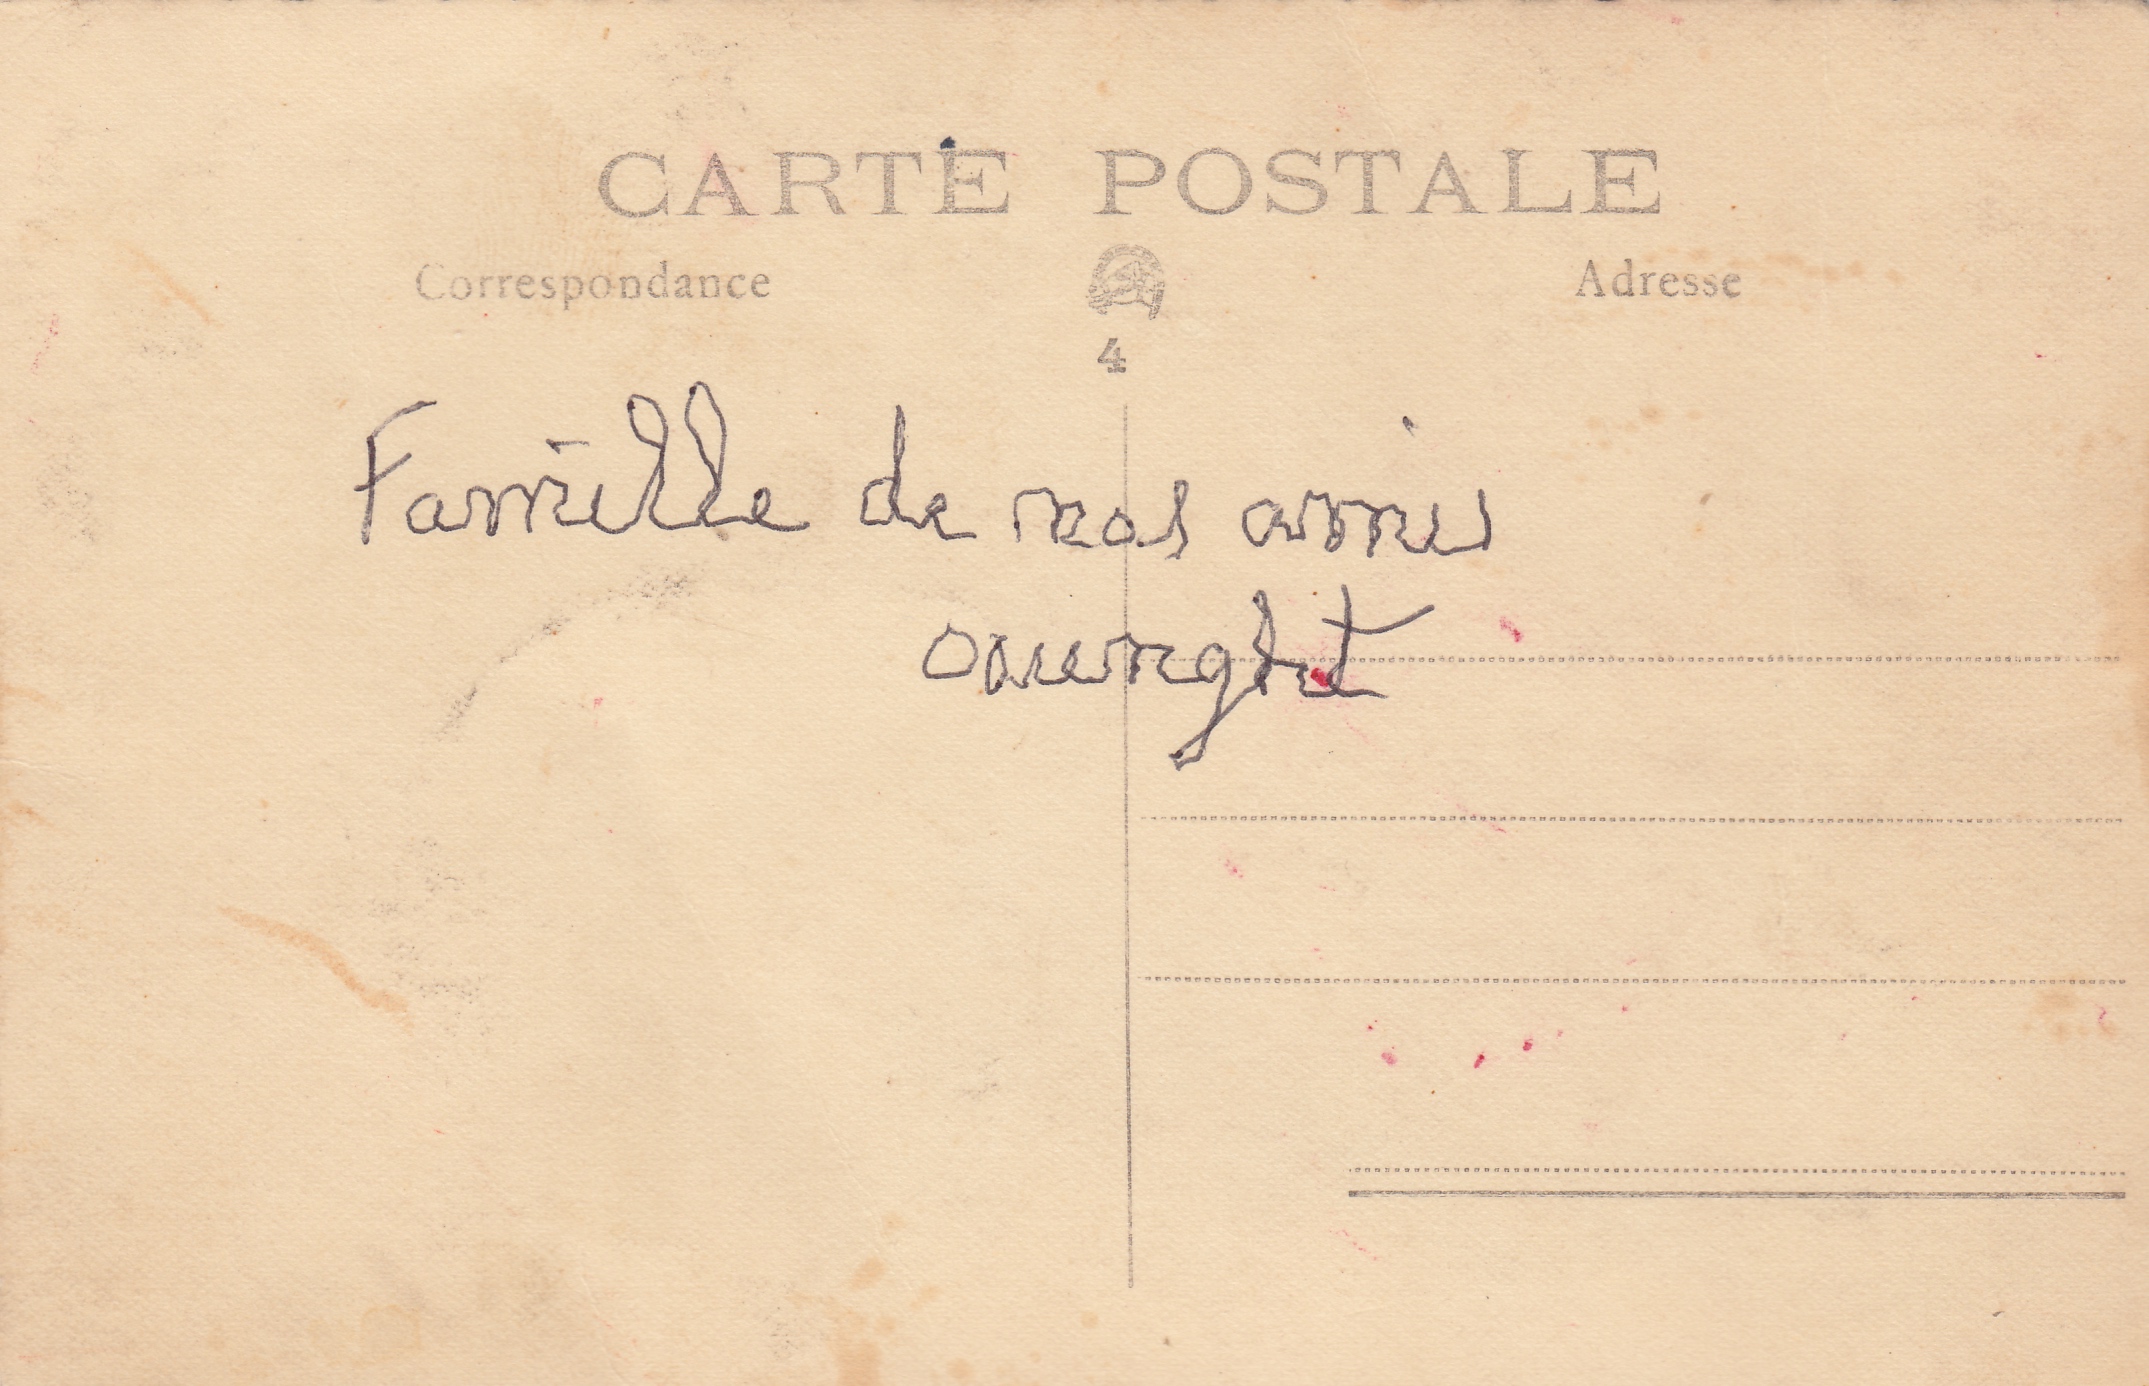 CARTE POSTALE
Correspondance
Adresse
4
Famille de nos amis